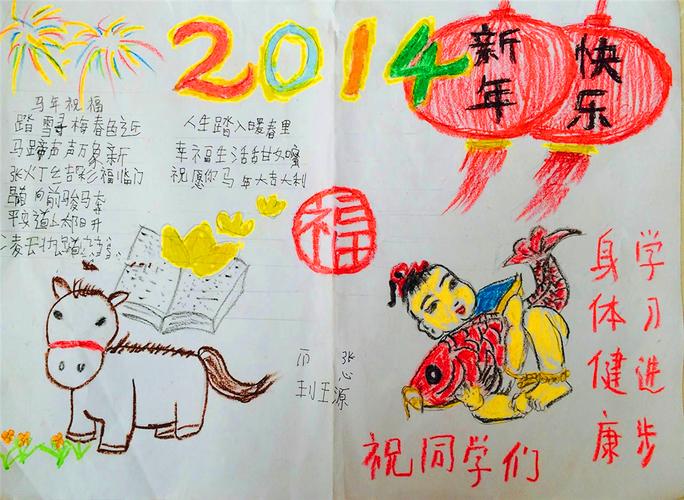 2014
新年
快乐
马年祝福
踏雪寻梅春近
马蹄声声万象新
张灯结彩福临门
向前骏马奔
平安道上太阳升
凌云壮踏
人生踏入暖春里
幸福生活甜如蜜
祝愿你马年大吉大利
福
祝同学们
学习进步
身体健康